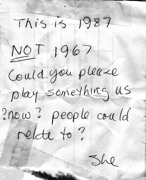 This is 1987
NOT 1967
Could you please
play something us
?now? people could
relate to?
She